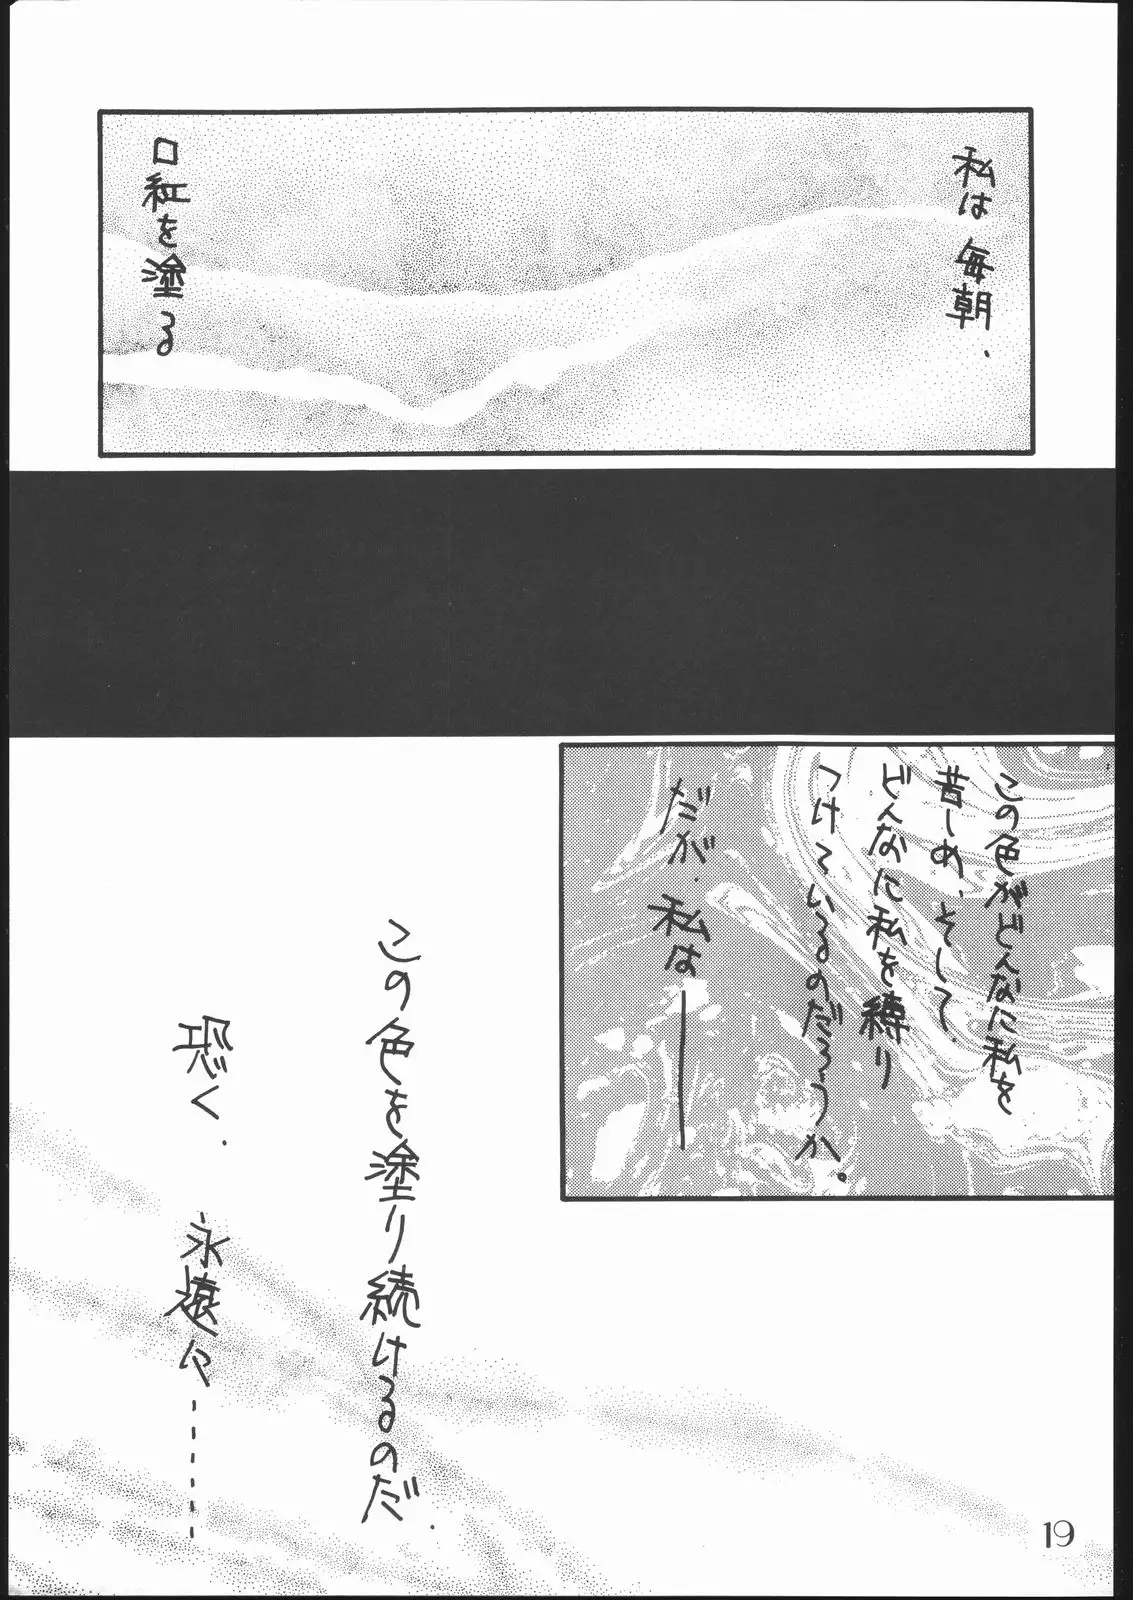 私は毎朝、
口紅を塗る
この色がどんなに私を
苦しめ、そして、
どんなに私を縛り
つけているのだろうか。
だが、私は――
この色を塗り続けるのだ。
恐く、
永遠に………
19